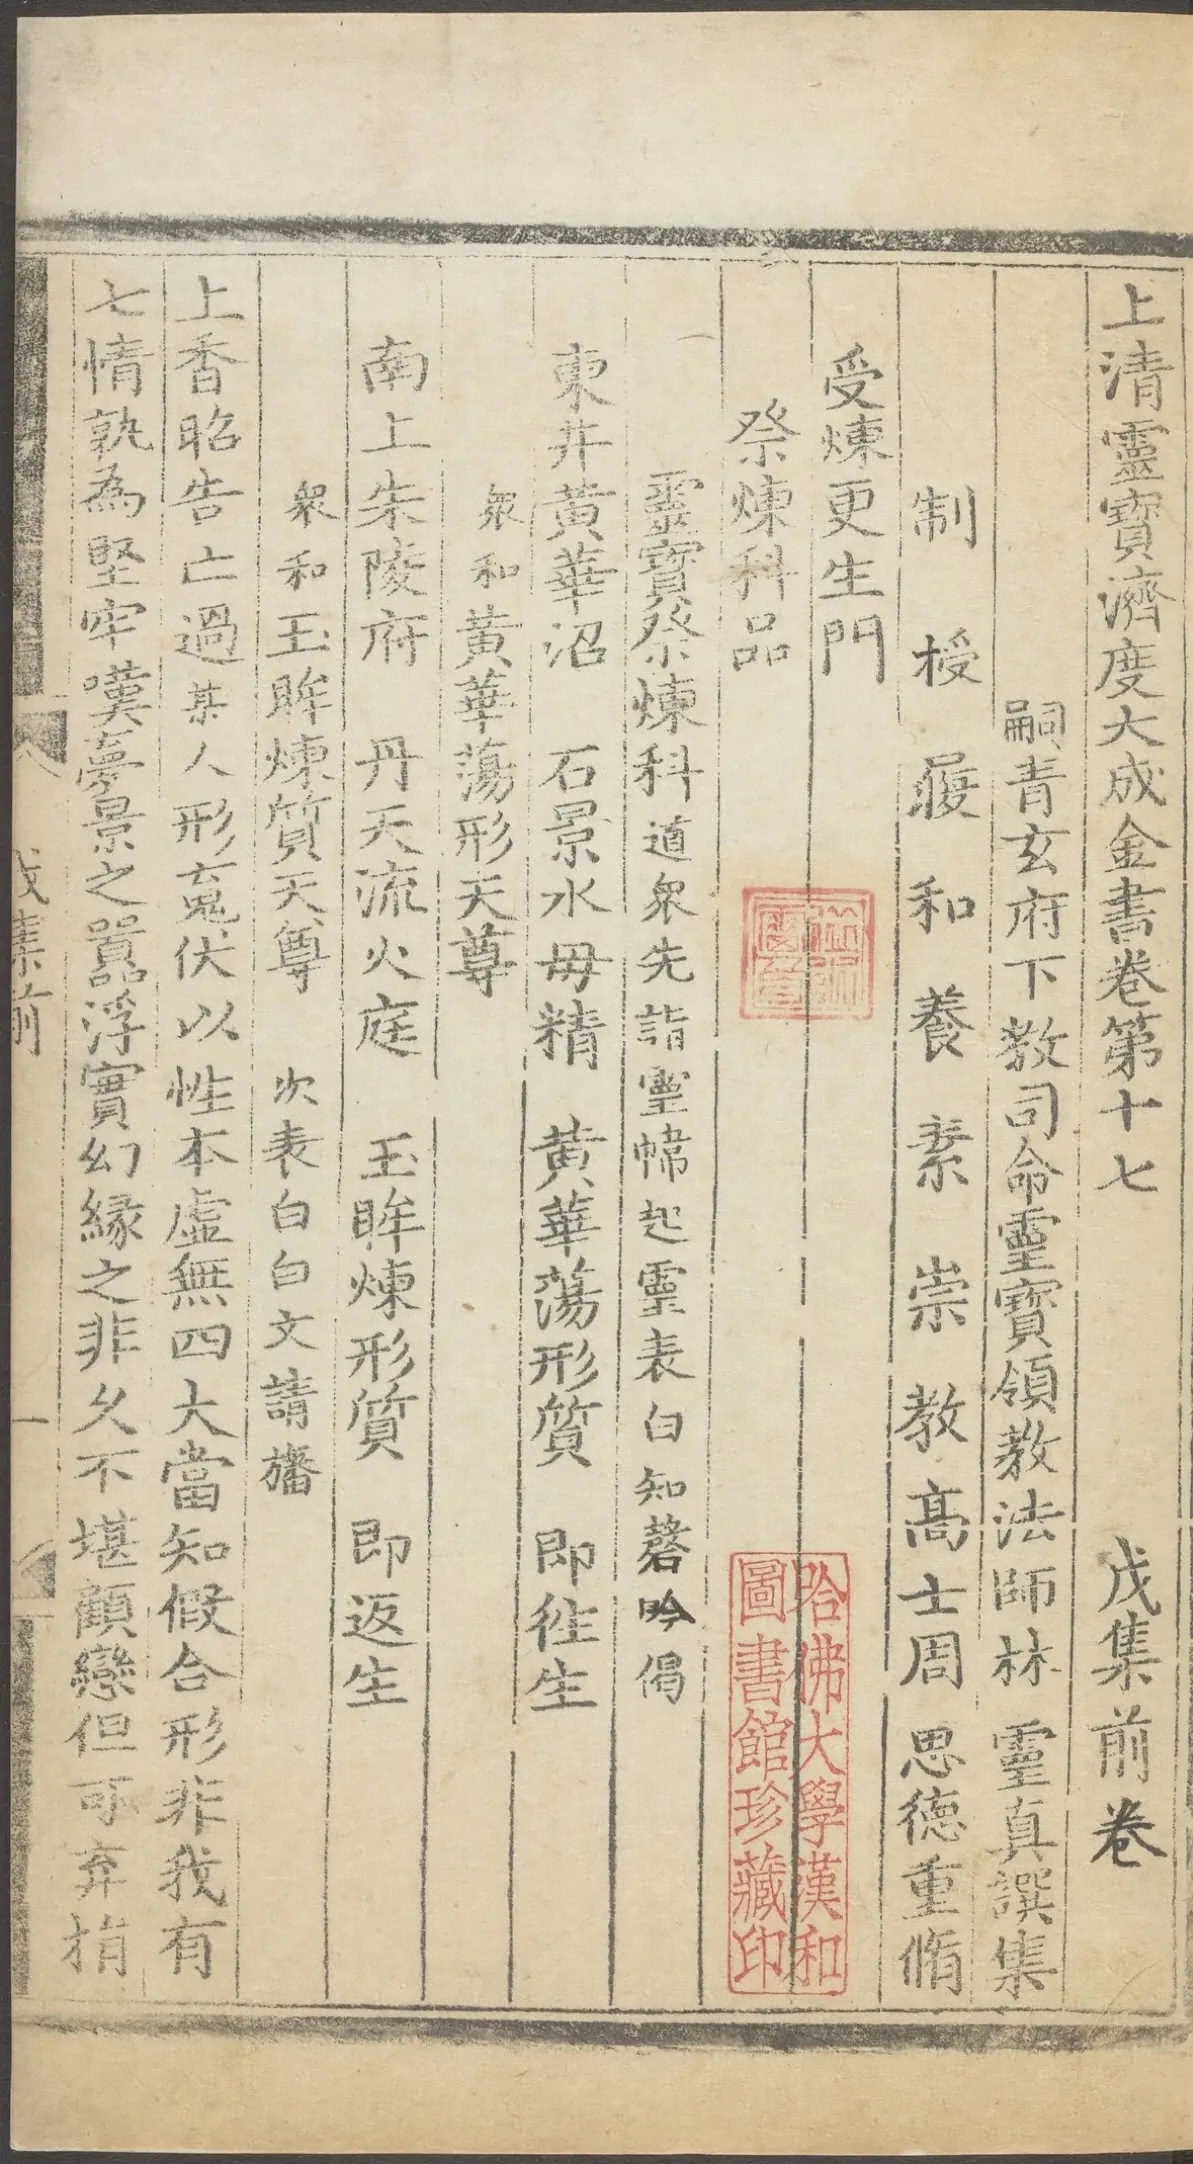 上清靈寶濟度大成金書卷第十七　戊集前卷
嗣青玄府下教司命靈寶領教法師林　靈真譔集
制授履和養素崇教高士周　思德重脩
受煉更生門
祭煉科品
靈寶祭煉科道衆先詣靈幃起靈表白知磬吟偈
東井黃華沼　石景水母精　黃華蕩形質　即往生
衆和黃華蕩形天尊
南上朱陵府　丹天流火庭　玉眸煉形質　即返生
衆和玉眸煉質天尊　次表白白文請旛
上香昭告亡過某人形䰟伏以性本虛無四大當知假合形非我有
七情孰為堅牢嘆夢景之嚣浮實幻緣之非久不堪顧戀但可弃捐
戊集前
一
哈佛大學漢和
圖書館珍藏印